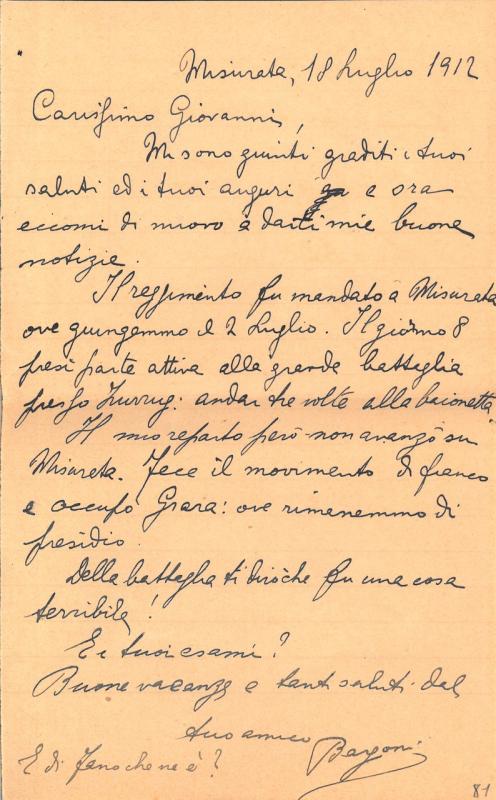 Misurata, 18 Luglio 1912
Carissimo Giovanni,
Mi sono giunti graditi i tuoi
saluti ed i tuoi auguri e ora
eccomi di nuovo a darti mie buone
notizie.
Il reggimento fu mandato a Misurata
ove giungemmo il 2 Luglio. Il giorno 8
presi parte attiva alla grande battaglia
presso Zurrug: andai tre volte alla baionetta.
Il mio reparto però non avanzò su
Misurata. Fece il movimento di fianco
e occupò Grara: ove rimanemmo di
presidio.
Della battaglia ti dirò che fu una cosa
terribile!
E i tuoi esami?
Buone vacanze e tanti saluti dal
tuo amico Bargoni
E di Fano che ne è?
81